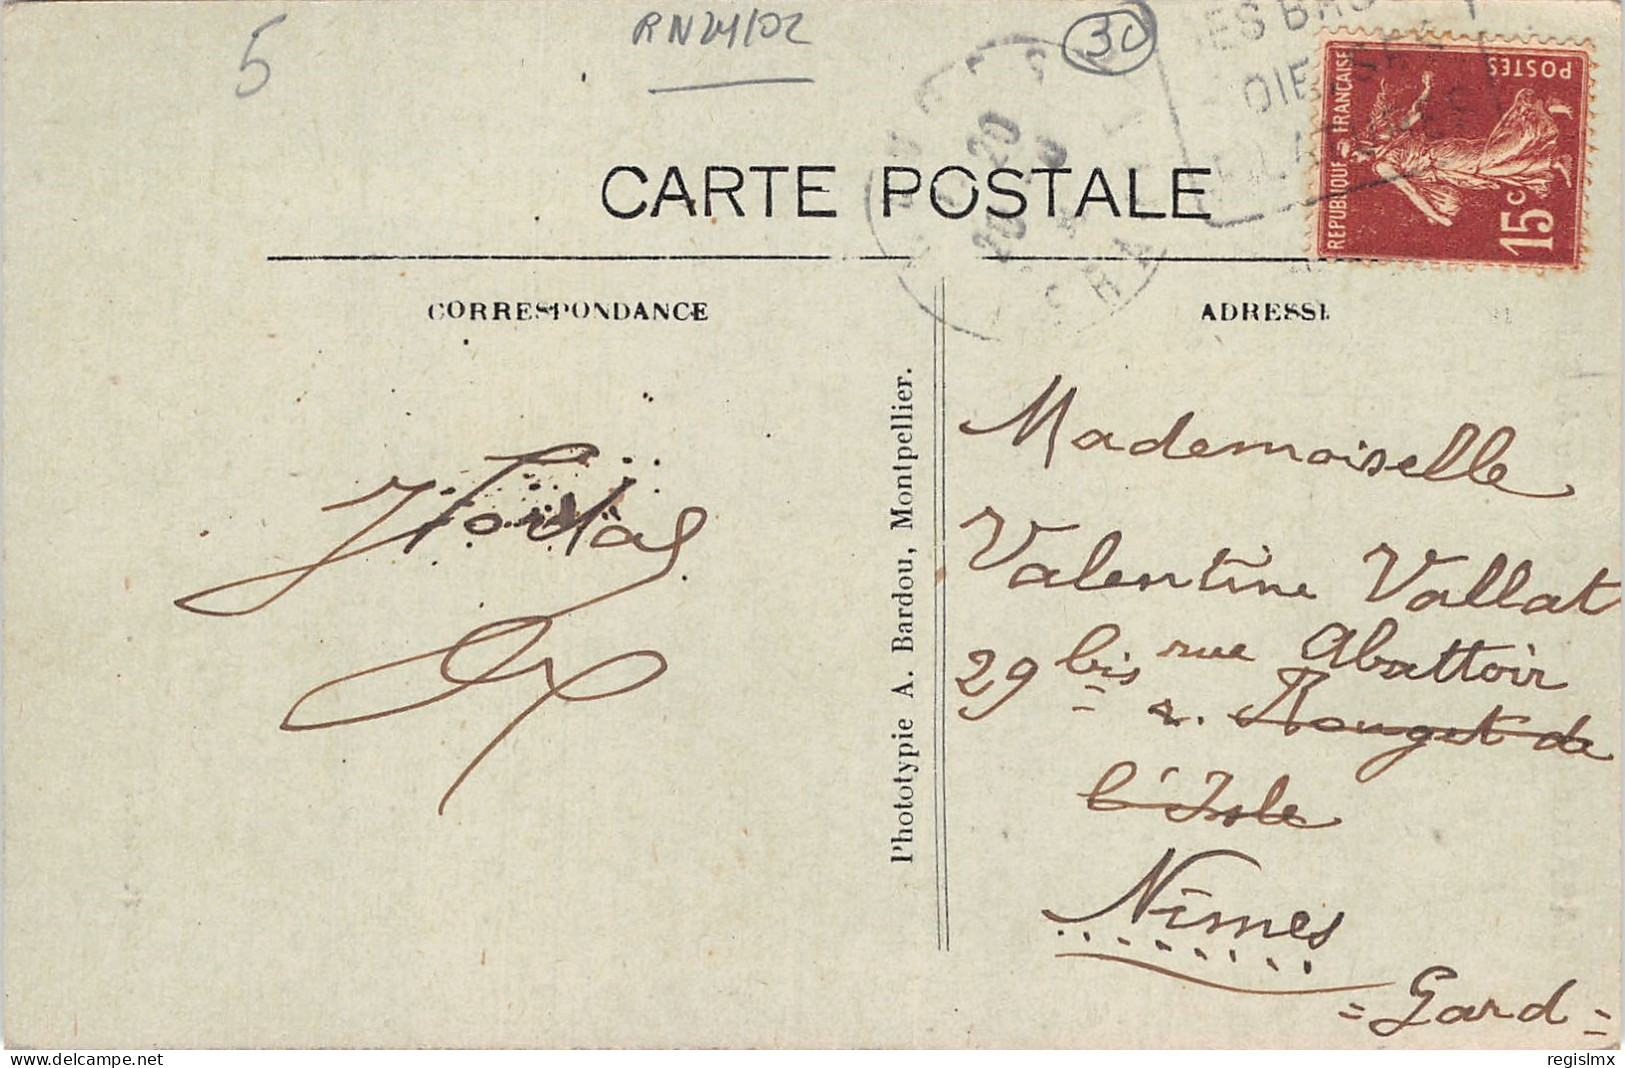 5
RN24/02
30
POSTES
REPUBLIQUE FRANÇAISE
15c
CARTE POSTALE
CORRESPONDANCE
ADRESSE
Phototypie A. Bardou, Montpellier.
Mademoiselle
Valentine Vallat
29 bis rue Abattoir
r. Rouget de
l'Isle
Nîmes
= Gard =
delcampe.net
regislmx